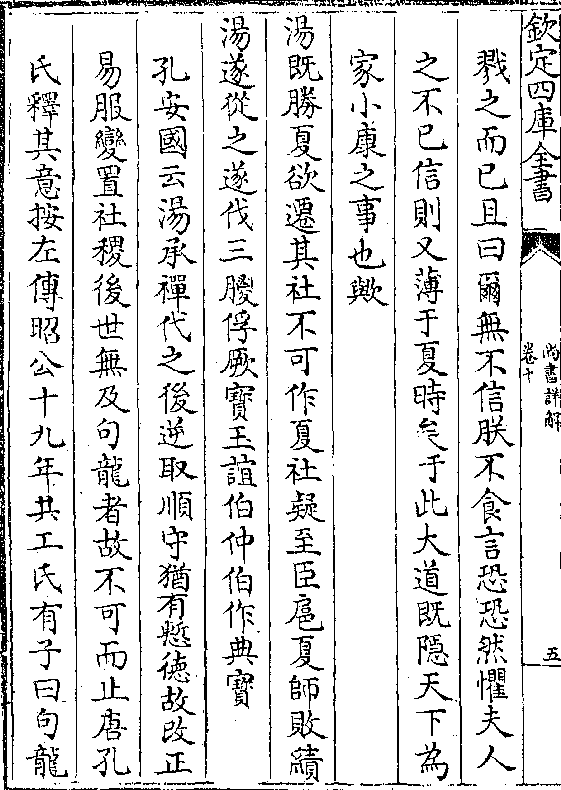 欽定四庫全書
尚書詳解
卷十
五
戮之而已且曰爾無不信朕不食言恐恐然懼夫人
之不已信則又薄于夏時矣于此大道既隱天下為
家小康之事也歟
湯既勝夏欲遷其社不可作夏社疑至臣扈夏師敗績
湯遂從之遂伐三朡俘厥寶玉誼伯仲伯作典寶
孔安國云湯承禪代之後逆取順守猶有慙徳故改正
易服變置社稷後世無及句龍者故不可而止唐孔
氏釋其意按左傳昭公十九年共工氏有子曰句龍